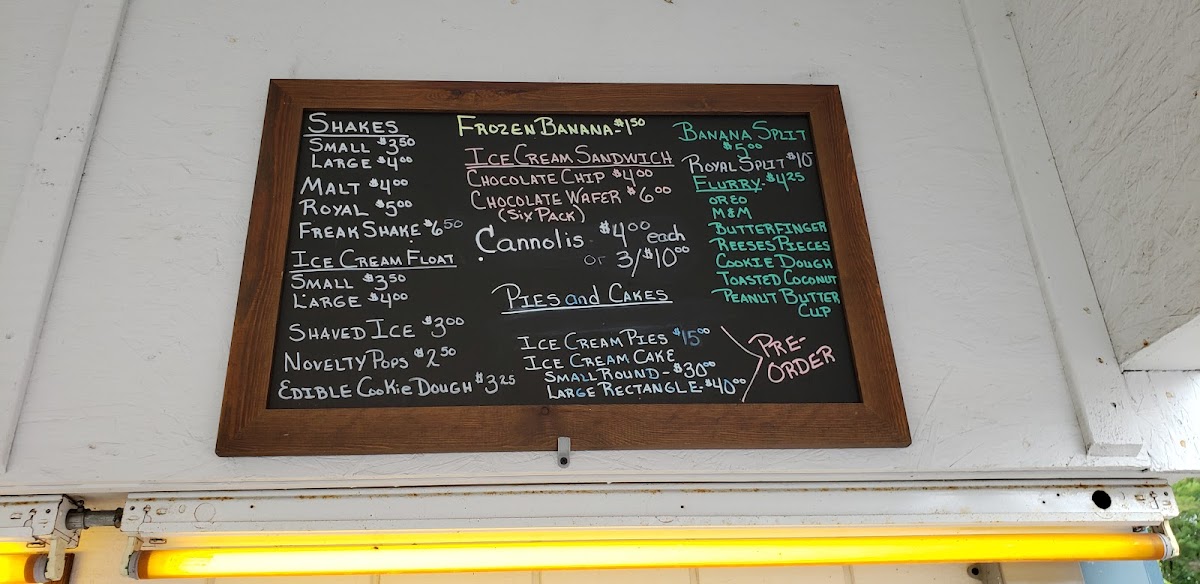 SHAKES
SMALL $3.50
LARGE $4.00
MALT $4.00
ROYAL $5.00
FREAK SHAKE $6.50
ICE CREAM FLOAT
SMALL $3.50
LARGE $4.00
SHAVED ICE $3.00
NOVELTY POPS $2.50
EDIBLE COOKIE DOUGH $3.25
FROZEN BANANA - $1.50
ICE CREAM SANDWICH
CHOCOLATE CHIP $4.00
CHOCOLATE WAFER $6.00
(SIX PACK)
CANNOLIS $4.00 each
or 3/$10.00
PIES and CAKES
ICE CREAM PIES $15.00
ICE CREAM CAKE
SMALL ROUND - $30.00
LARGE RECTANGLE - $40.00
PRE-
ORDER
BANANA SPLIT
$5.00
ROYAL SPLIT $10
FLURRY - $4.25
OREO
M&M
BUTTERFINGER
REESES PIECES
COOKIE DOUGH
TOASTED COCONUT
PEANUT BUTTER
CUP